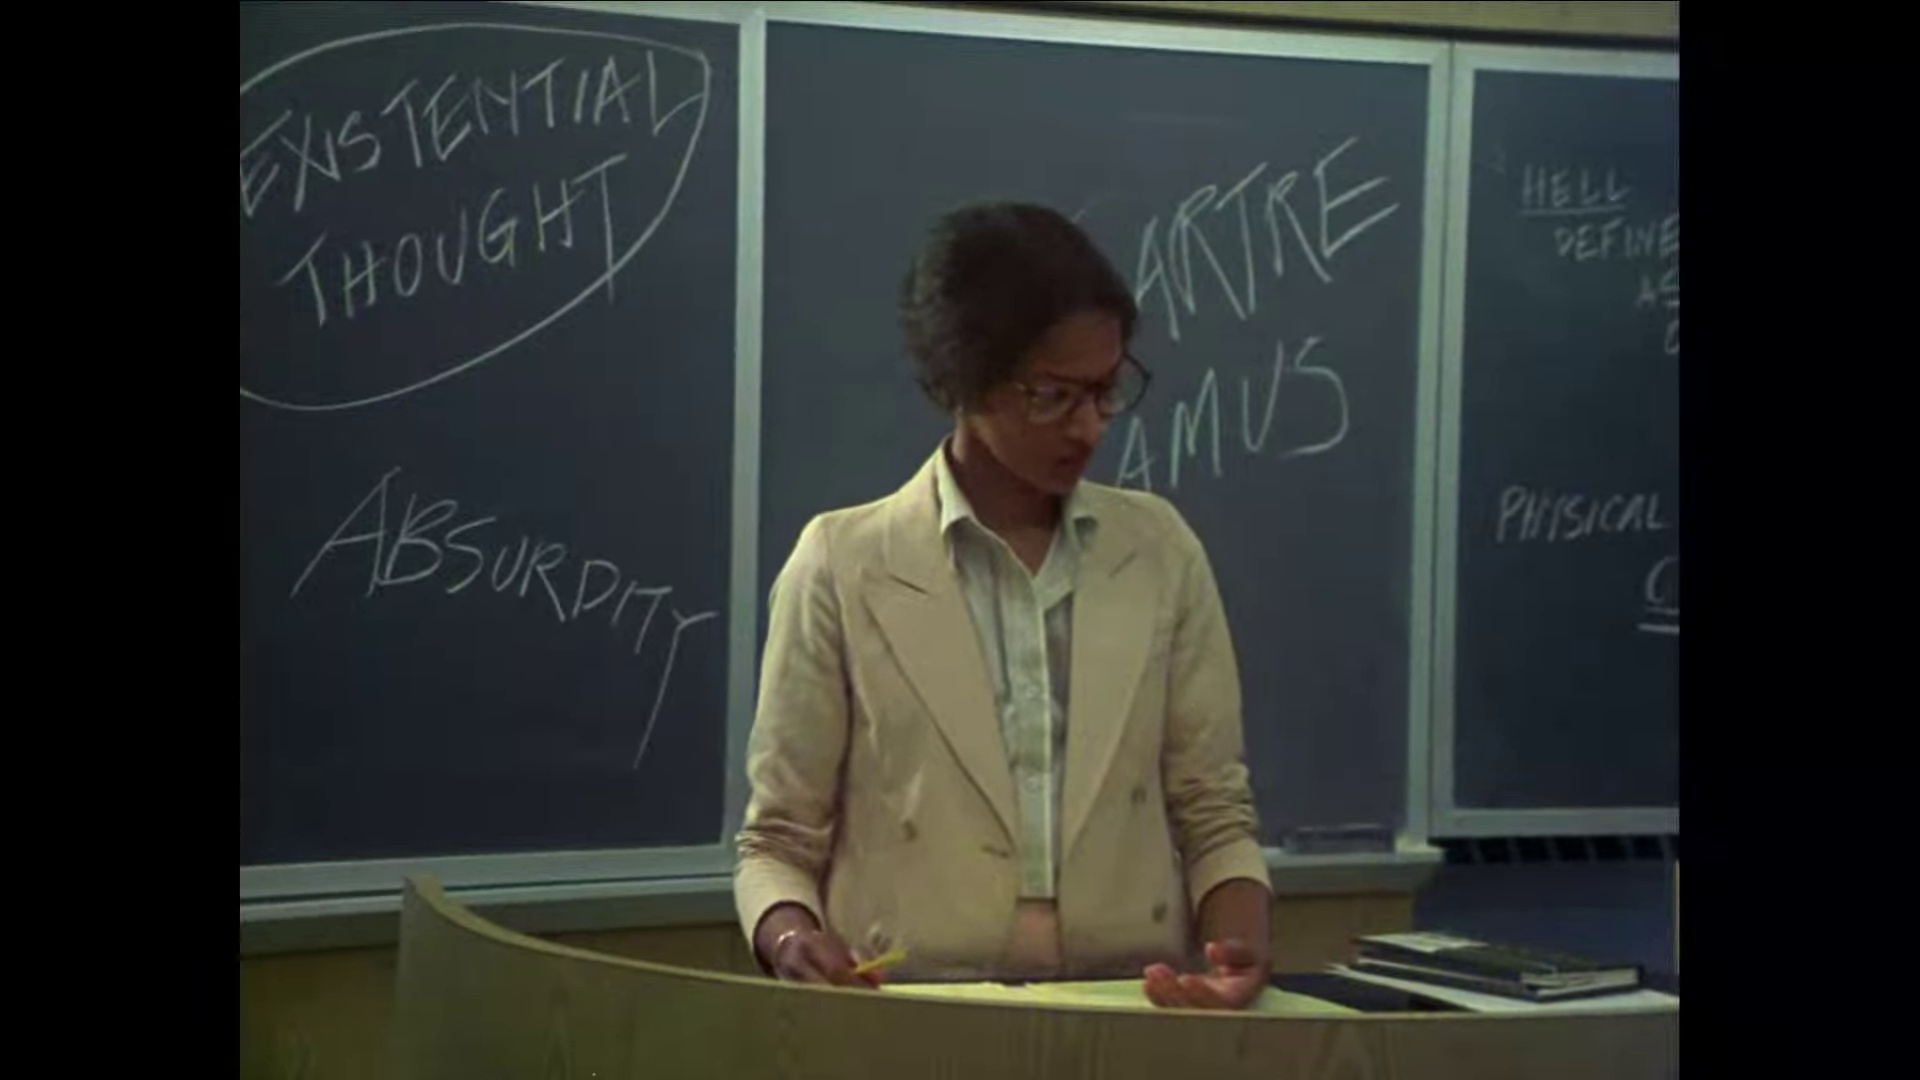 EXISTENTIAL
THOUGHT
ABSURDITY
ARTRE
AMUS
HELL
DEFINE
AS
PHYSICAL